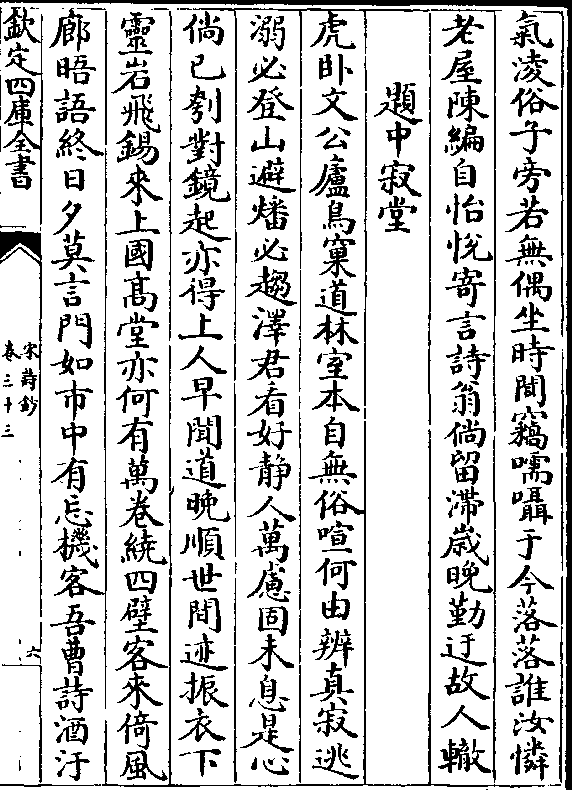 氣凌俗子旁若無偶坐時間竊嚅囁于今落落誰汝憐
老屋陳編自怡悅寄言詩翁倘留滯歳晚勤迂故人轍
題中寂堂
虎卧文公廬鳥窠道林室本自無俗喧何由辨真寂逃
溺必登山避燔必趨澤君看好靜人萬慮固未息是心
倘已刳對鏡起亦得上人早聞道晚順世間迹振衣下
靈岩飛錫來上國髙堂亦何有萬卷繞四壁客來倚風
廊晤語終日夕莫言門如市中有忘機客吾曹詩酒汙
欽定四庫全書
宋詩鈔
卷三十三
六